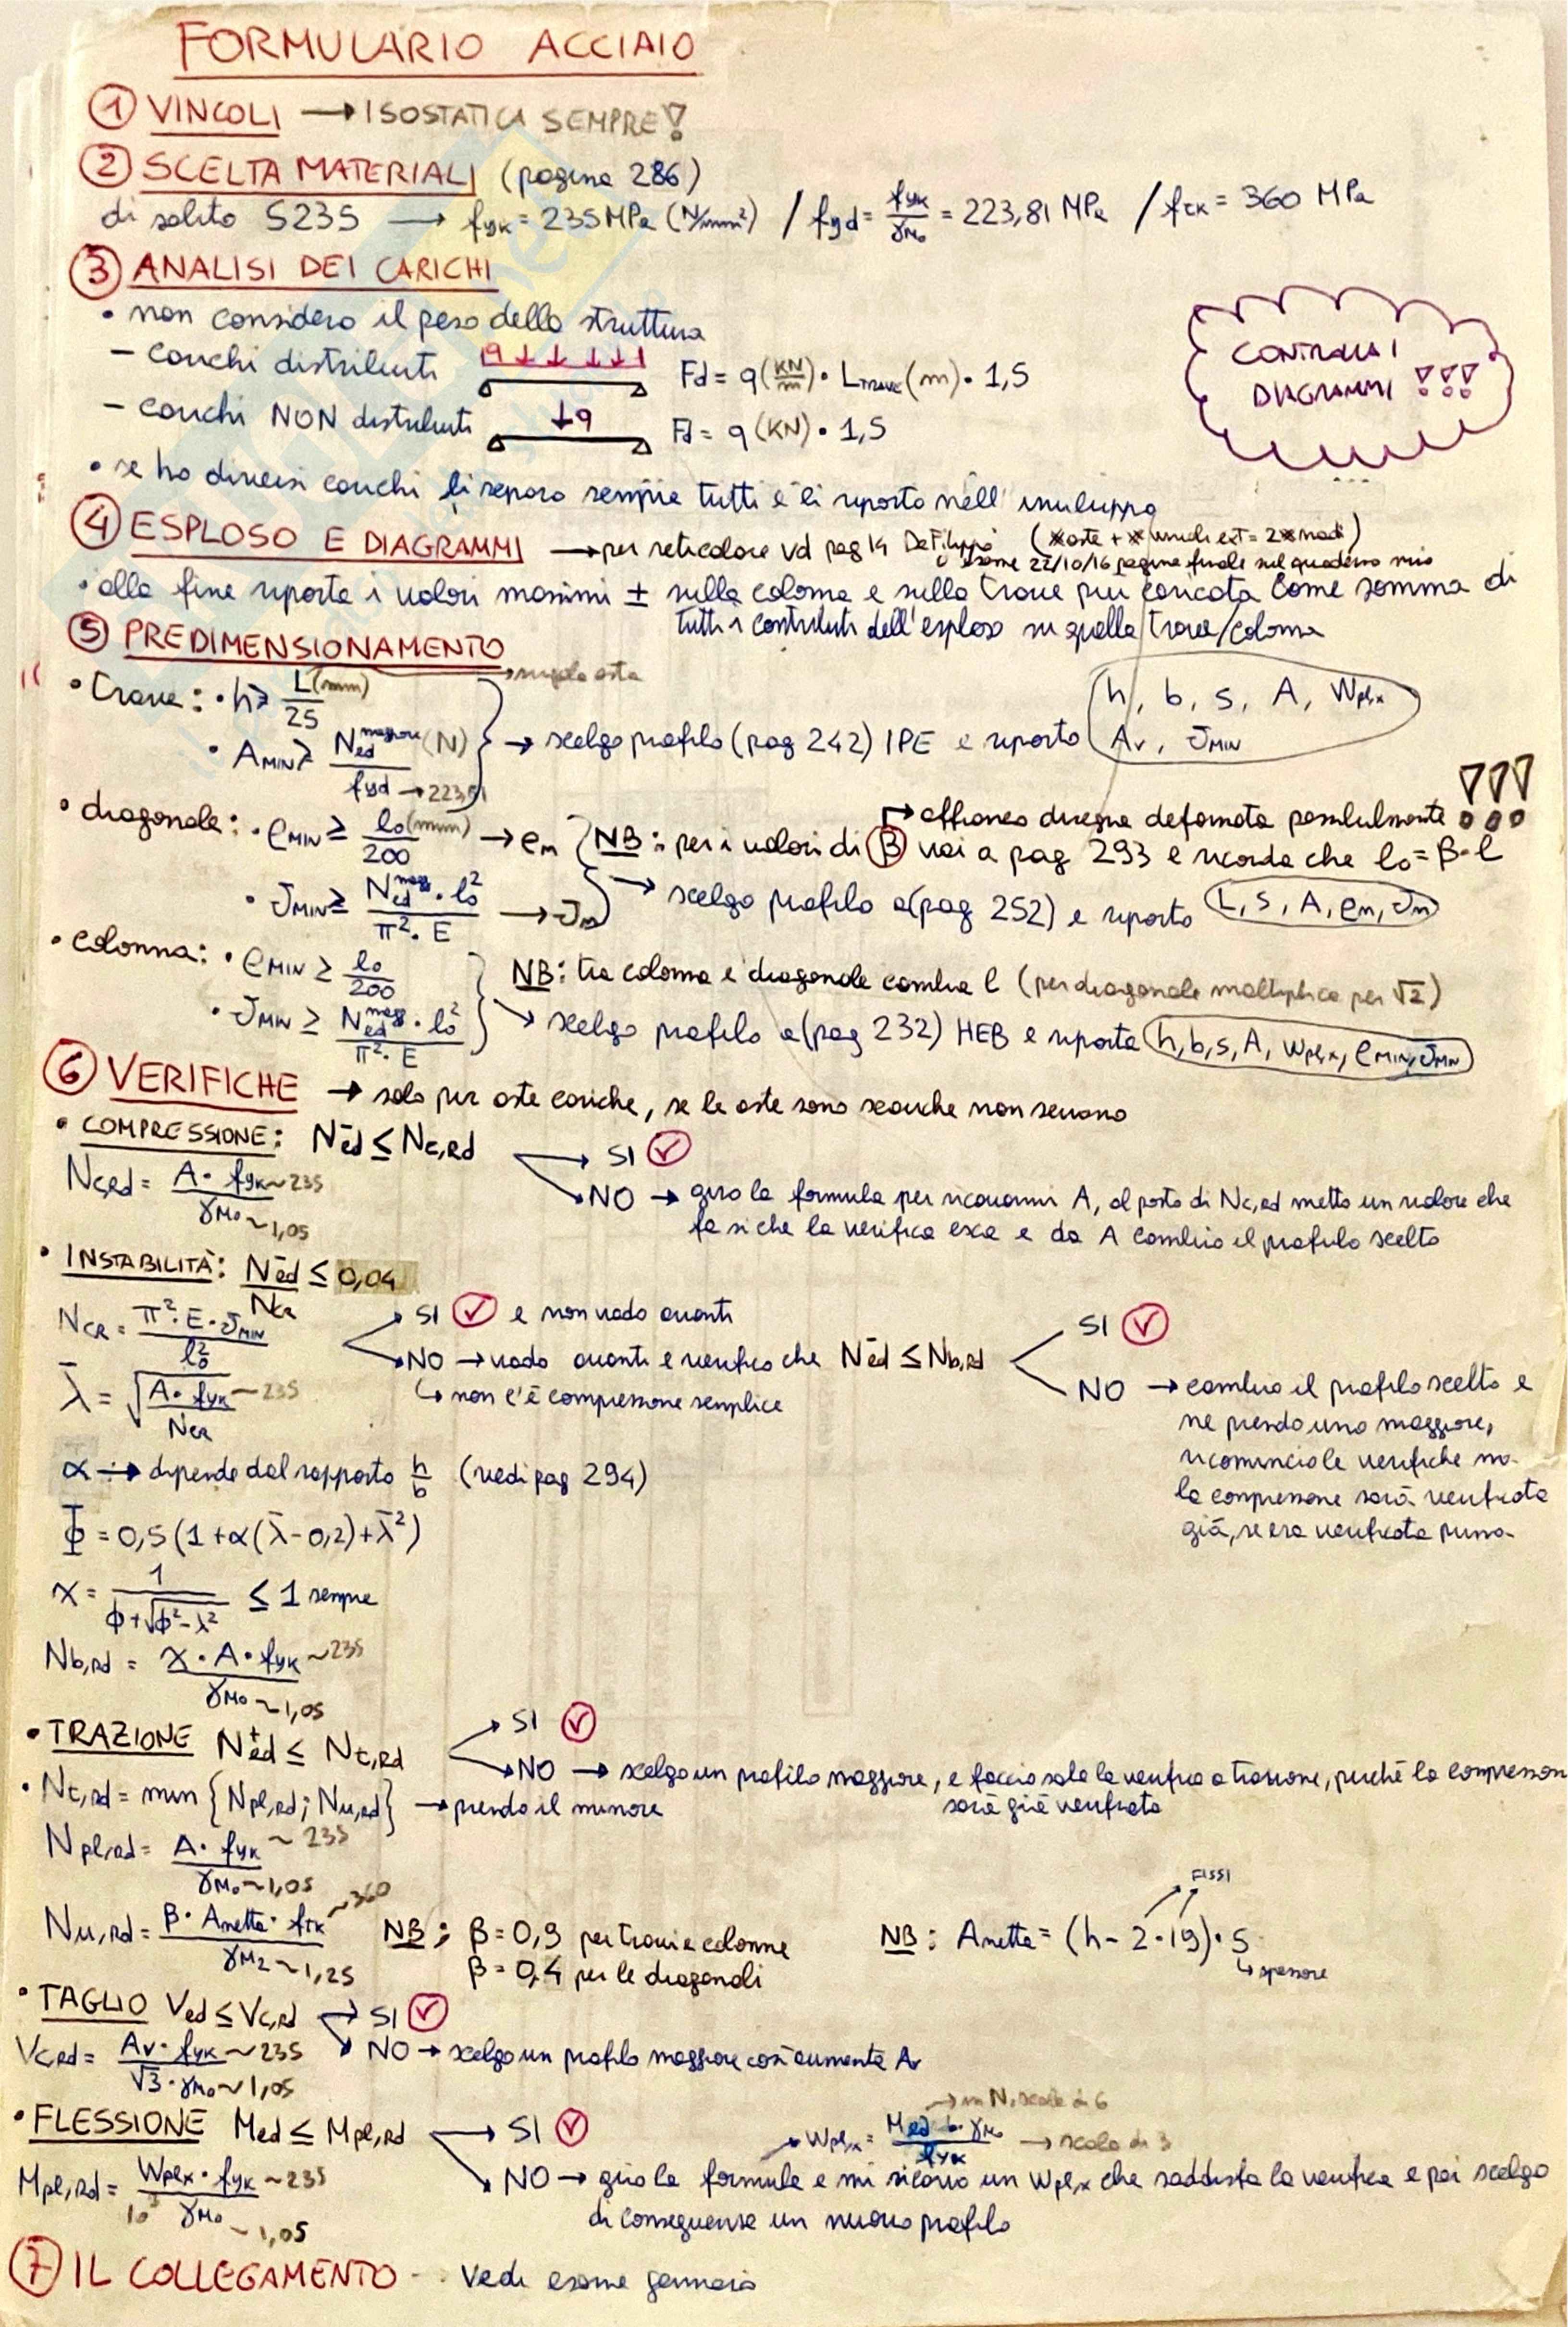 FORMULARIO ACCIAIO
① VINCOLI → ISOSTATICA SEMPRE!
② SCELTA MATERIALI (pagina 286)
di solito S235 → fyk = 235 MPa (N/mm²) / fyd = fyk/γM0 = 223,81 MPa / ftk = 360 MPa
③ ANALISI DEI CARICHI
• non considero il peso della struttura
– carichi distribuiti q Fd = q (KN/m) · LTRAVE (m) · 1,5
– carichi NON distribuiti q Fd = q (KN) · 1,5
CONTROLLA I
DIAGRAMMI !!!
• se ho diversi carichi li separo sempre tutti e li riporto nell'inviluppo
④ ESPLOSO E DIAGRAMMI → per reticolare vd pag 14 De Filippi (aste + vincoli est = 2 nodi)
esame 22/10/16 pagine finale sul quaderno mio
• alla fine riporta i valori massimi ± sulla colonna e sulla trave più caricata come somma di
tutti i contributi dell'esploso su quella trave/colonna
⑤ PREDIMENSIONAMENTO
• trave: • h ≥ L(mm)/25 → singola asta
• AMIN ≥ Ned maggiore (N)/fyd → 223,81 → scelgo profilo (pag 242) IPE e riporto h, b, s, A, Wpl,x
Av, JMIN
• diagonale: • ρMIN ≥ l0(mm)/200 → ρm NB: per i valori di β vai a pag 293 e ricorda che l0 = β·l
→ affianco disegna deformata possibilmente !!!
• JMIN ≥ Ned magg · l0²/π² · E → Jm → scelgo profilo a (pag 252) e riporto L, S, A, ρm, Jm
• colonna: • ρMIN ≥ l0/200 NB: tra colonna e diagonale cambia l (per diagonale moltiplica per √2)
• JMIN ≥ Ned magg · l0²/π² · E → scelgo profilo a (pag 232) HEB e riporta h, b, s, A, Wpl,x, ρMIN, JMIN
⑥ VERIFICHE → solo per aste cariche, se le aste sono scariche non servono
• COMPRESSIONE: Ned⁻ ≤ Nc,Rd → SI ✓
Nc,Rd = A · fyk ~235/γM0 ~1,05 → NO → giro la formula per ricavarmi A, al posto di Nc,Rd metto un valore che
fa si che la verifica esca e da A cambio il profilo scelto
• INSTABILITÀ: Ned⁻/Ncr ≤ 0,04
NCR = π² · E · JMIN/l0² → SI ✓ e non vado avanti
→ NO → vado avanti e verifico che Ned⁻ ≤ Nb,Rd
↳ non c'è compressione semplice
SI ✓
NO → cambio il profilo scelto e
ne prendo uno maggiore,
ricomincio le verifiche ma
la compressione sarà verificata
già, se era verificata prima.
λ̄ = √A · fyk ~235/NCR
α → dipende dal rapporto h/b (vedi pag 294)
Φ = 0,5 (1 + α(λ̄ - 0,2) + λ̄²)
χ = 1/ϕ + √ϕ² - λ² ≤ 1 sempre
Nb,Rd = χ · A · fyk ~235/γM0 ~1,05
• TRAZIONE Ned⁺ ≤ Nt,Rd → SI ✓
→ NO → scelgo un profilo maggiore, e faccio solo la verifica a trazione, perché la compression
sarà già verificata
• Nt,Rd = min {Npl,Rd; Nu,Rd} → prendo il minore
Npl,Rd = A · fyk ~ 235/γM0 ~1,05
Nu,Rd = β · Anetta · ftk ~360/γM2 ~1,25 NB: β = 0,9 per travi e colonne
β = 0,4 per le diagonali
NB: Anetta = (h - 2 · 19) · S
FISSI
↳ spessore
• TAGLIO Ved ≤ Vc,Rd → SI ✓
Vc,Rd = Av · fyk ~235/√3 · γM0 ~1,05 → NO → scelgo un profilo maggiore così aumenta Av
• FLESSIONE Med ≤ Mpl,Rd → SI ✓
→ Wpl,x = Med · γM0/fyk → in N, scala di 6
→ scala di 3
Mpl,Rd = Wpl,x · fyk ~235/10³ γM0 ~1,05 → NO → giro la formula e mi ricavo un Wpl,x che soddisfa la verifica e poi scelgo
di conseguenza un nuovo profilo
⑦ IL COLLEGAMENTO - vedi esame gennaio